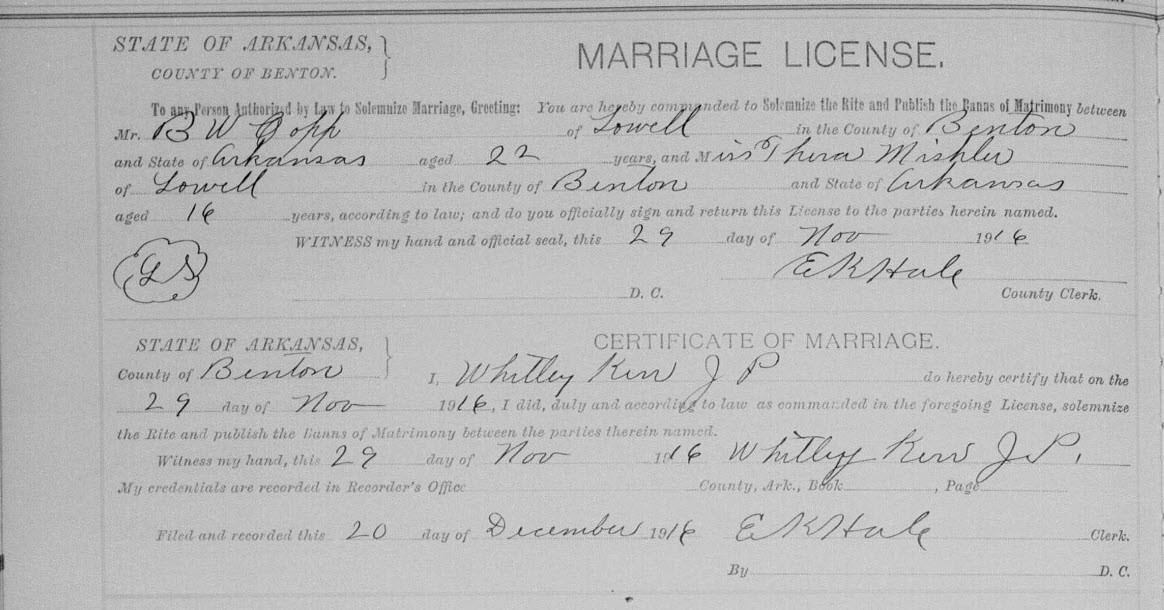 STATE OF ARKANSAS,
COUNTY OF BENTON.
MARRIAGE LICENSE.
To any Person Authorized by Law to Solemnize Marriage, Greeting: You are hereby commanded to Solemnize the Rite and Publish the Banns of Matrimony between
Mr. B W Copp of Lowell in the County of Benton
and State of Arkansas aged 22 years, and Miss Thera Mishler
of Lowell in the County of Benton and State of Arkansas
aged 16 years, according to law; and do you officially sign and return this License to the parties herein named.
WITNESS my hand and official seal, this 29 day of Nov 1916
LS
E K Hale
D. C. County Clerk.
STATE OF ARKANSAS,
CERTIFICATE OF MARRIAGE.
County of Benton I, Whitley Kerr J P do hereby certify that on the
29 day of Nov 1916, I did, duly and according to law as commanded in the foregoing License, solemnize
the Rite and publish the Banns of Matrimony between the parties therein named.
Witness my hand, this 29 day of Nov 1916 Whitley Kerr J.P.
My credentials are recorded in Recorder's Office County, Ark., Book , Page
Filed and recorded this 20 day of December 1916 E K Hale Clerk.
By D. C.